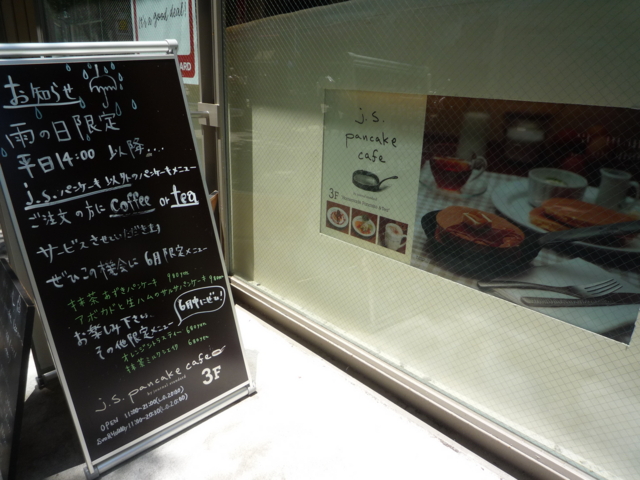 It's a good deal!
ARD
お知らせ
雨の日限定
平日14:00 以降....
j.s.パンケーキ以外のパンケーキメニュー
ご注文の方に coffee or tea
サービスさせていただきます
ぜひこの機会に 6月限定メニュー
抹茶あずきパンケーキ 980yen
アボカドと生ハムのサルサパンケーキ
お楽しみ下さい....
6月中にぜひ!
その他限定メニュー
680yen
680yen
j.s. pancake cafe
3F
OPEN
j.s.
pancake
cafe
3F